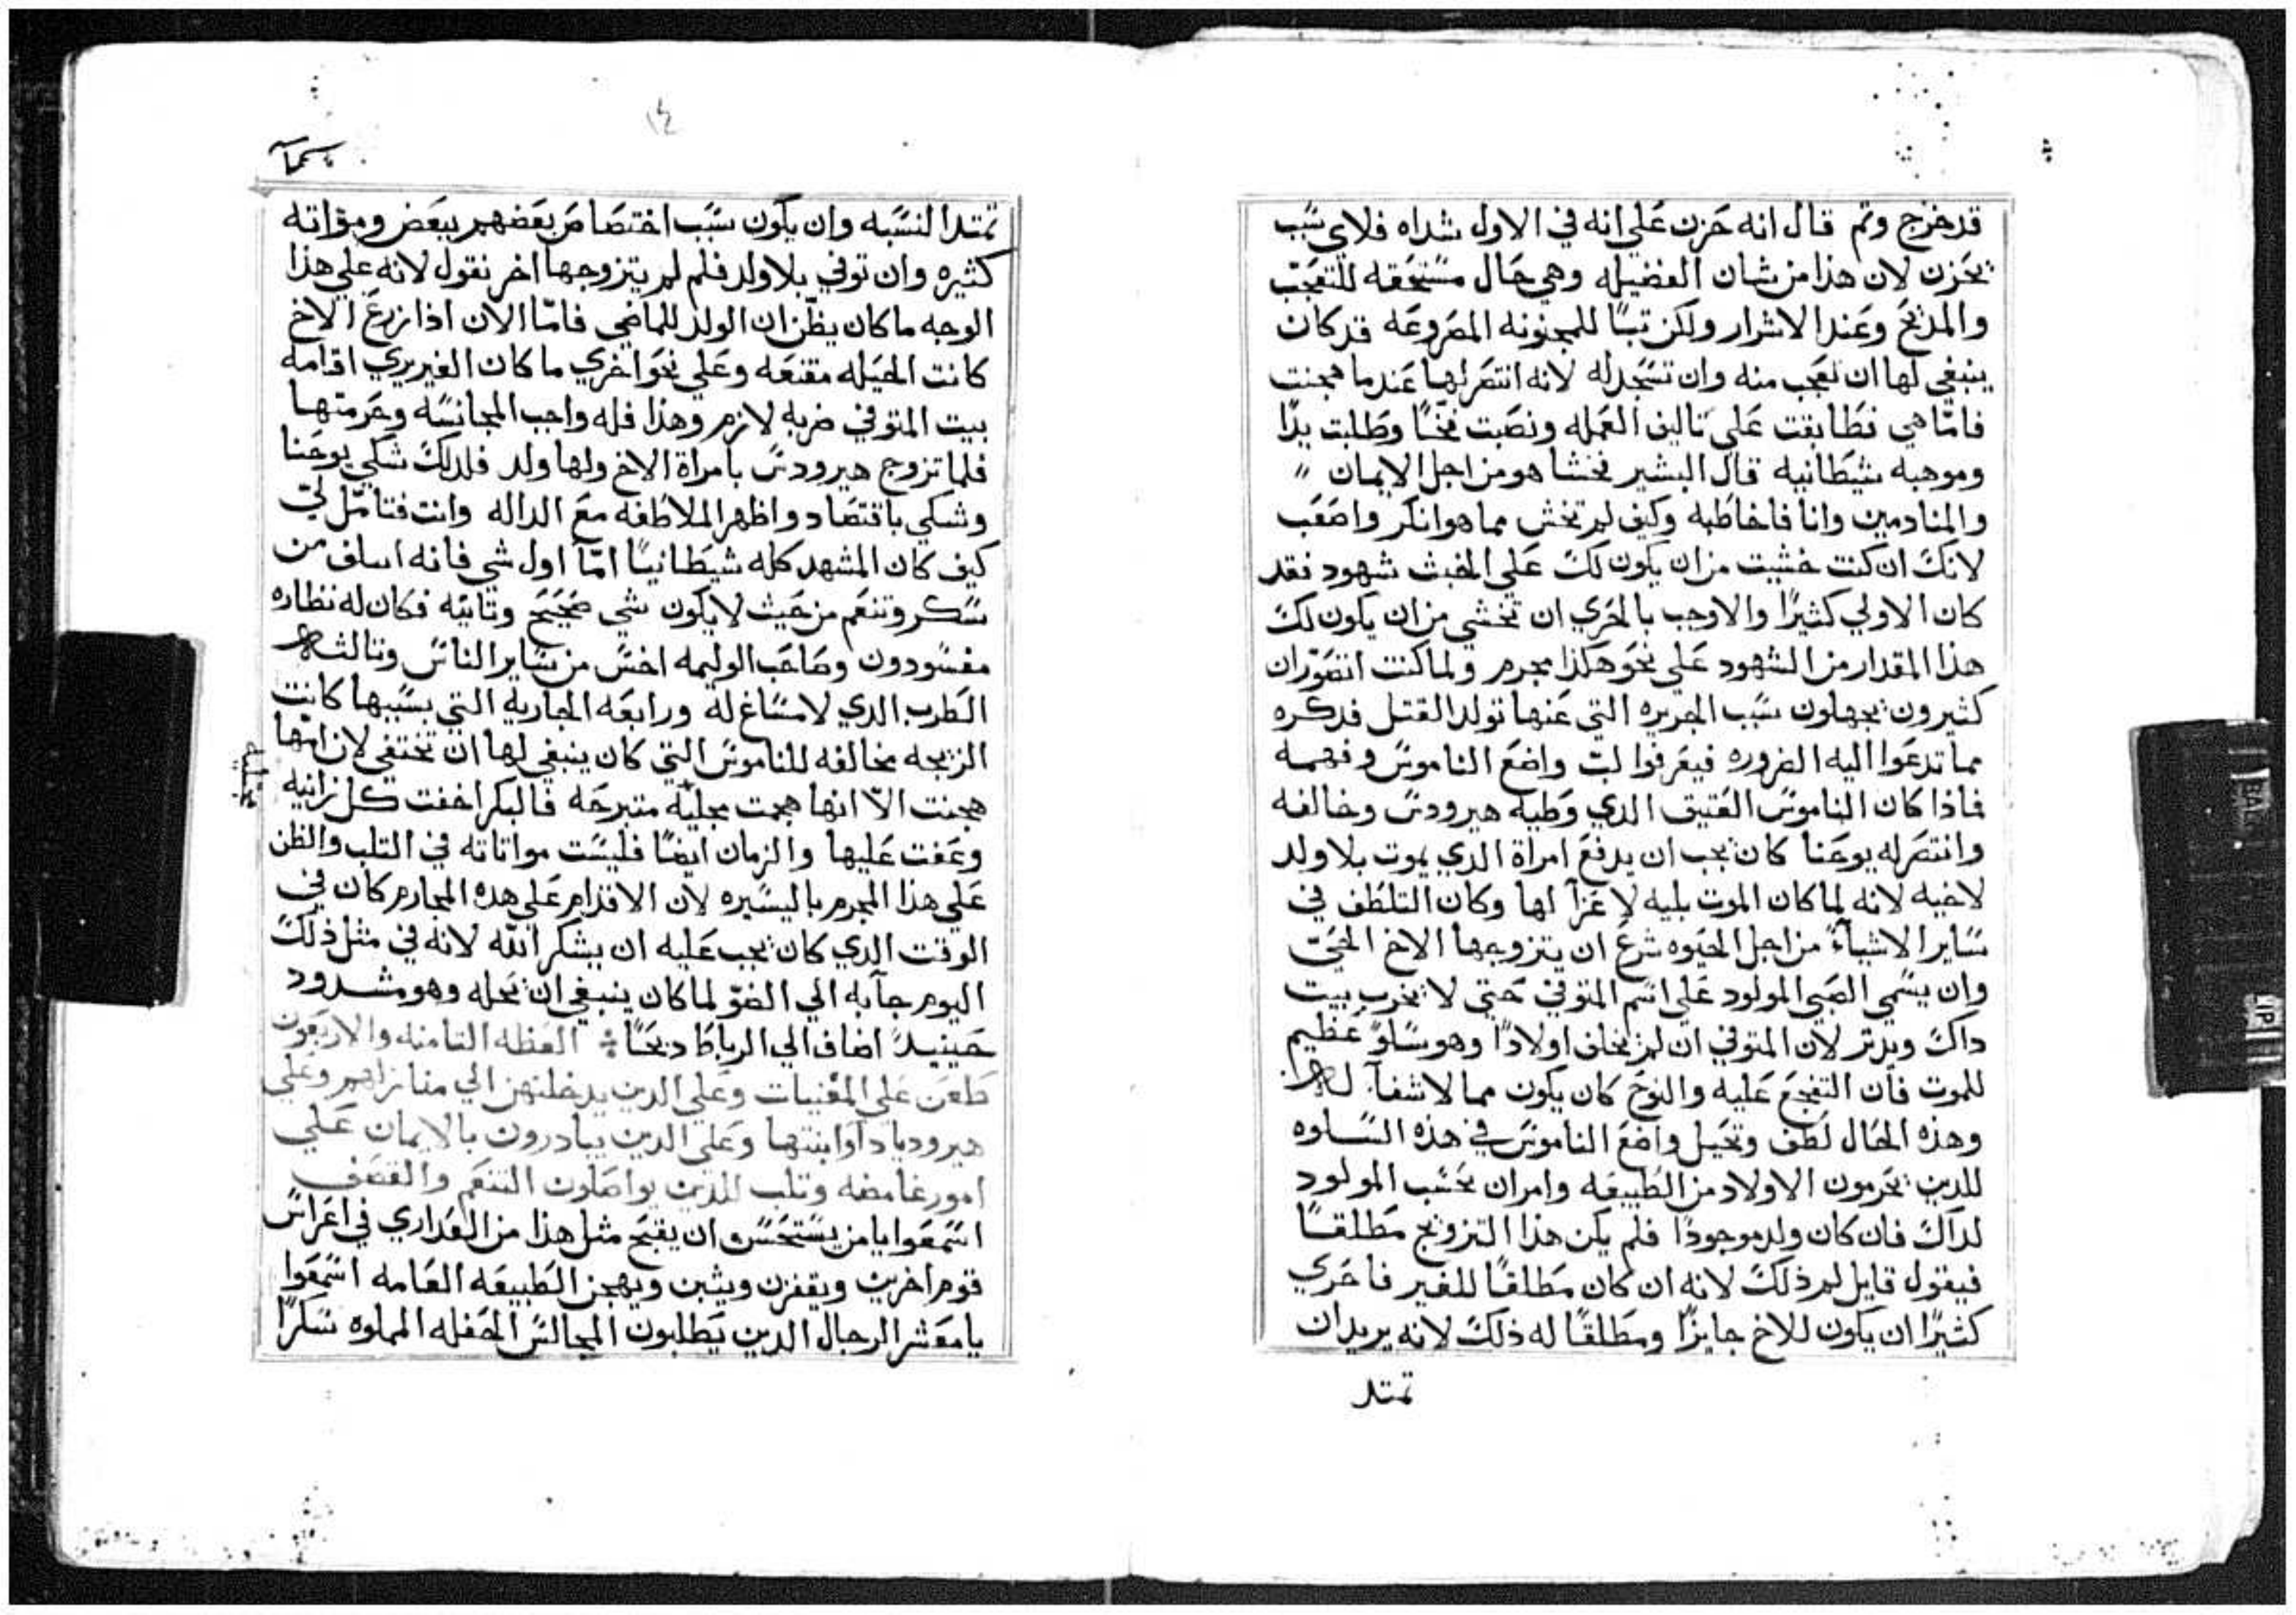 قد خرج وثم قال انه حزن علي انه في الاول شداه فلاي سبب
يحزن لان هذا من شان الفضيله وهي حال مستحقه للتعجب
والمديح وعند الاشرار ولكن تبًا للمجنونه المصروعه قد كان
ينبغي لها ان تعجب منه وان تسجد له لانه انتصر لها عندما هجنت
فامّا هي فطابقت علي تاليف العمله ونصبت فخًا وطلبت يدًا
وموهبه شيطانيه قال البشير فخشا هو من اجل الايمان
والمنادمين وانا فاخاطبه وكيف لم تخش مما هو انكر واصعب
لانك ان كنت خشيت من ان يكون لك علي الخبث شهود فقد
كان الاولي كثيرًا والاوجب بالحري ان تخشي من ان يكون لك
هذا المقدار من الشهود علي نحو هكذا مجرم ولما كنت اتصوّر ان
كثيرون يجهلون سبب الجريره التي عنها تولد القتل فدكره
مما تدعوا اليه الضروره فيعرفوا لبّ واضع الناموس وفهمه
فاذا كان الناموس العتيق الدي وطيه هيرودس وخالفه
وانتصر له يوحنا كان يجب ان يدفع امراة الدي يموت بلا ولد
لاخيه لانه لما كان الموت بليه لا عزآ لها وكان التلطف في
ساير الاشيآء من اجل الحيوه شرع ان يتزوجها الاخ الحيّ
وان يسمي الصبي المولود علي اسم المتوفي حتي لا يخرب بيت
داك ويدثر لان المتوفي ان لم يخلف اولادًا وهو سلوٌ عظيم
للموت فان التفجع عليه والنوح كان يكون مما لا شفآ له
وهذه الحال لطف وتحيل واضع الناموس في هذه السلوه
للدين يحرمون الاولاد من الطبيعه وامر ان يحسب المولود
لداك فان كان ولد موجودًا فلم يكن هذا التزويج مطلقًا
فيقول قايل لم ذلك لانه ان كان مطلقًا للغير فاحري
كثيرًا ان يكون للاخ جايزًا ومطلقًا له ذلك لانه يريد ان
تمتد
١٤
تمتد النسبه وان يكون سبب اختصاص بعضهم ببعض ومؤاته
كثيره وان توفي بلا ولد فلم لم يتزوجها اخر نقول لانه علي هذا
الوجه ما كان يظن ان الولد للماضي فامّا الان اذا زرع الاخ
كانت الحيله مقنعه وعلي نحو اخري ما كان الغير يري اقامه
بيت المتوفي ضربه لازم وهذا فله واجب المجانسه وحرمتها
فلما تزوج هيرودس بامراة الاخ ولها ولد فلدلك شكي يوحنا
وشكي باقتصاد واظهر الملاطفه مع الداله وانت فتامّل لي
كيف كان المشهد كله شيطانيًا امّا اول شي فانه اسلف من
سكر وتنعم من حيث لا يكون شي صحيح وثانيه فكان له نظاره
مفسودون وصاحب الوليمه اخس من ساير الناس وثالثه
الطرب الدي لا مساغ له ورابعه الجاريه التي بسببها كانت
الزيجه مخالفه للناموس التي كان ينبغي لها ان تختفي لان امّها
هجنت الّا انها هجمت مجليّه متبرجه فالبكر اخفت كل زانيه
مجليه
وعفت عليها والزمان ايضًا فليست مواتاته في الثلب والظن
علي هذا المجرم باليسيره لان الاقدام علي هده المجارم كان في
الوقت الدي كان يجب عليه ان يشكر الله لانه في مثل ذلك
اليوم جآ به الي الضوّ لما كان ينبغي ان يحله وهو مشدود
حينيدٍ اضاف الي الرباط دبحًا العظه الثامنه والاربعون
طعن علي المغنيات وعلي الدين يدخلنهن الي منازلهم وعلي
هيروديادا وابنتها وعلي الدين يبادرون بالايمان علي
امور غامضه وثلب للدين يواصلون التنعم والقصف
اسمعوا يا من يستحسن ان يقبح مثل هذا من العداري في اعراس
قوم اخرين ويقفزن ويثبن ويهجن الطبيعه العامه اسمعوا
يا معشر الرجال الدين يطلبون المجالس الحفله المملوه سكرًا